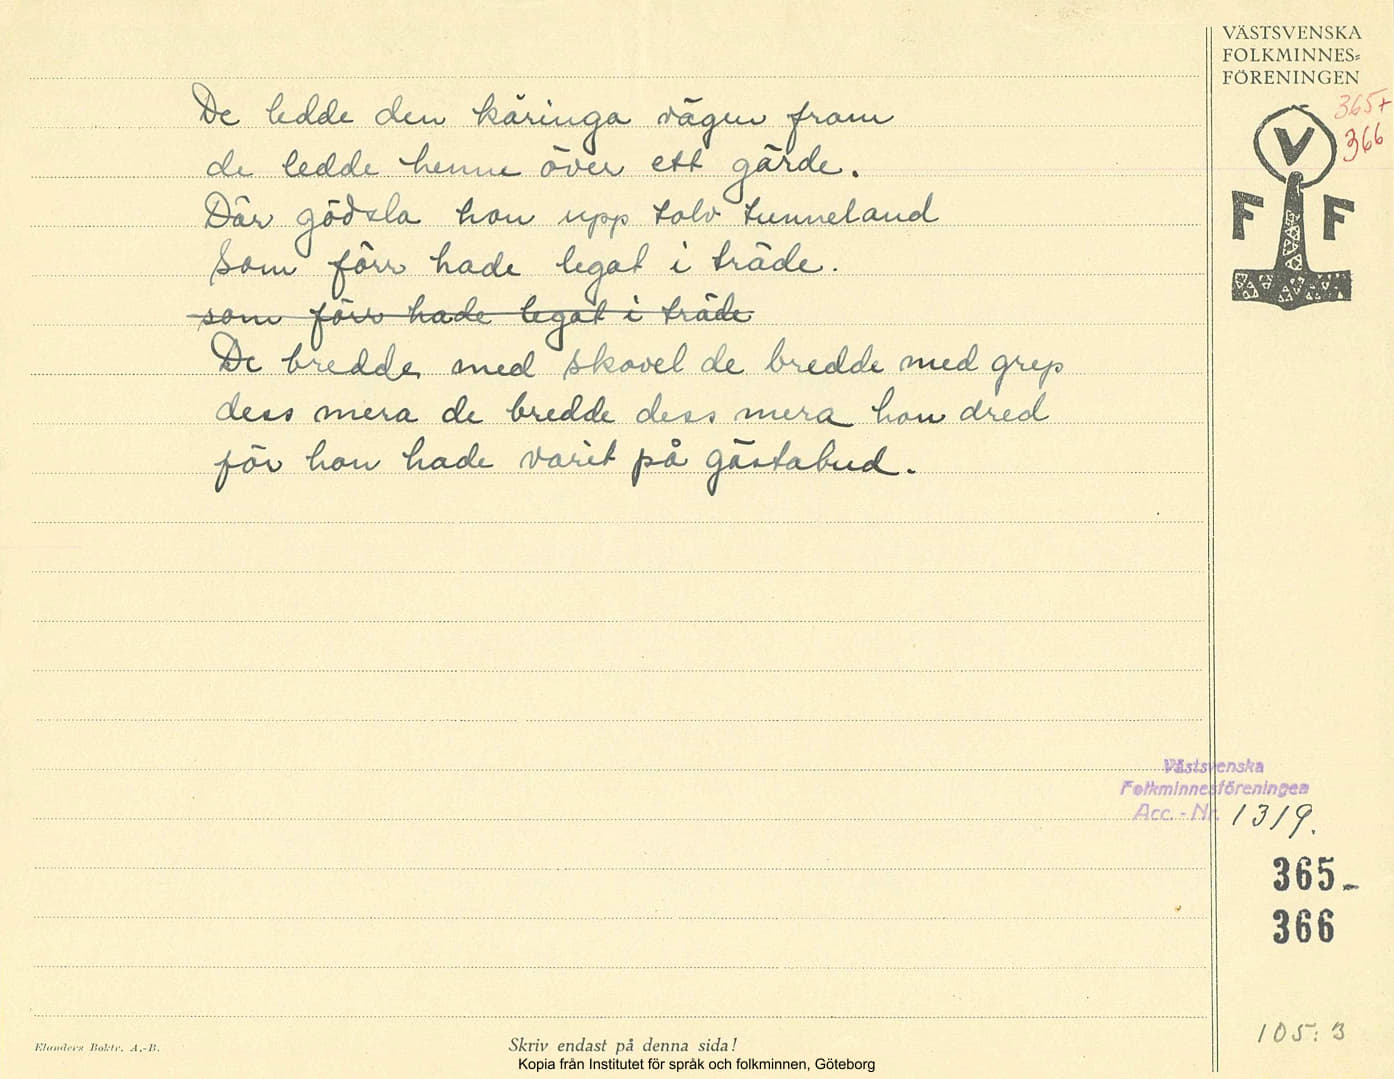 VÄSTSVENSKA
FOLKMINNES=
FÖRENINGEN
365+
366
V
F F
De ledde den käringa vägen fram
de ledde henne över ett gärde.
Där gödsla hon upp tolv tunneland
Som förr hade legat i träde.
som förr hade legat i träde
De bredde med skovel de bredde med grep
dess mera de bredde dess mera hon dred
för hon hade varit på gästabud.
Västsvenska
Folkminnesföreningen
Acc. - Nr. 1319.
365-
366
105:3
Elanders Boktr. A.-B.
Skriv endast på denna sida!
Kopia från Institutet för språk och folkminnen, Göteborg